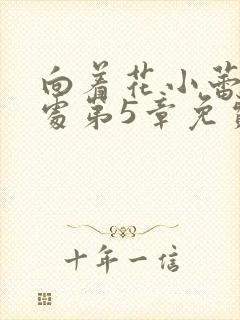 向着花小蕾
处第5章免费
十年一信